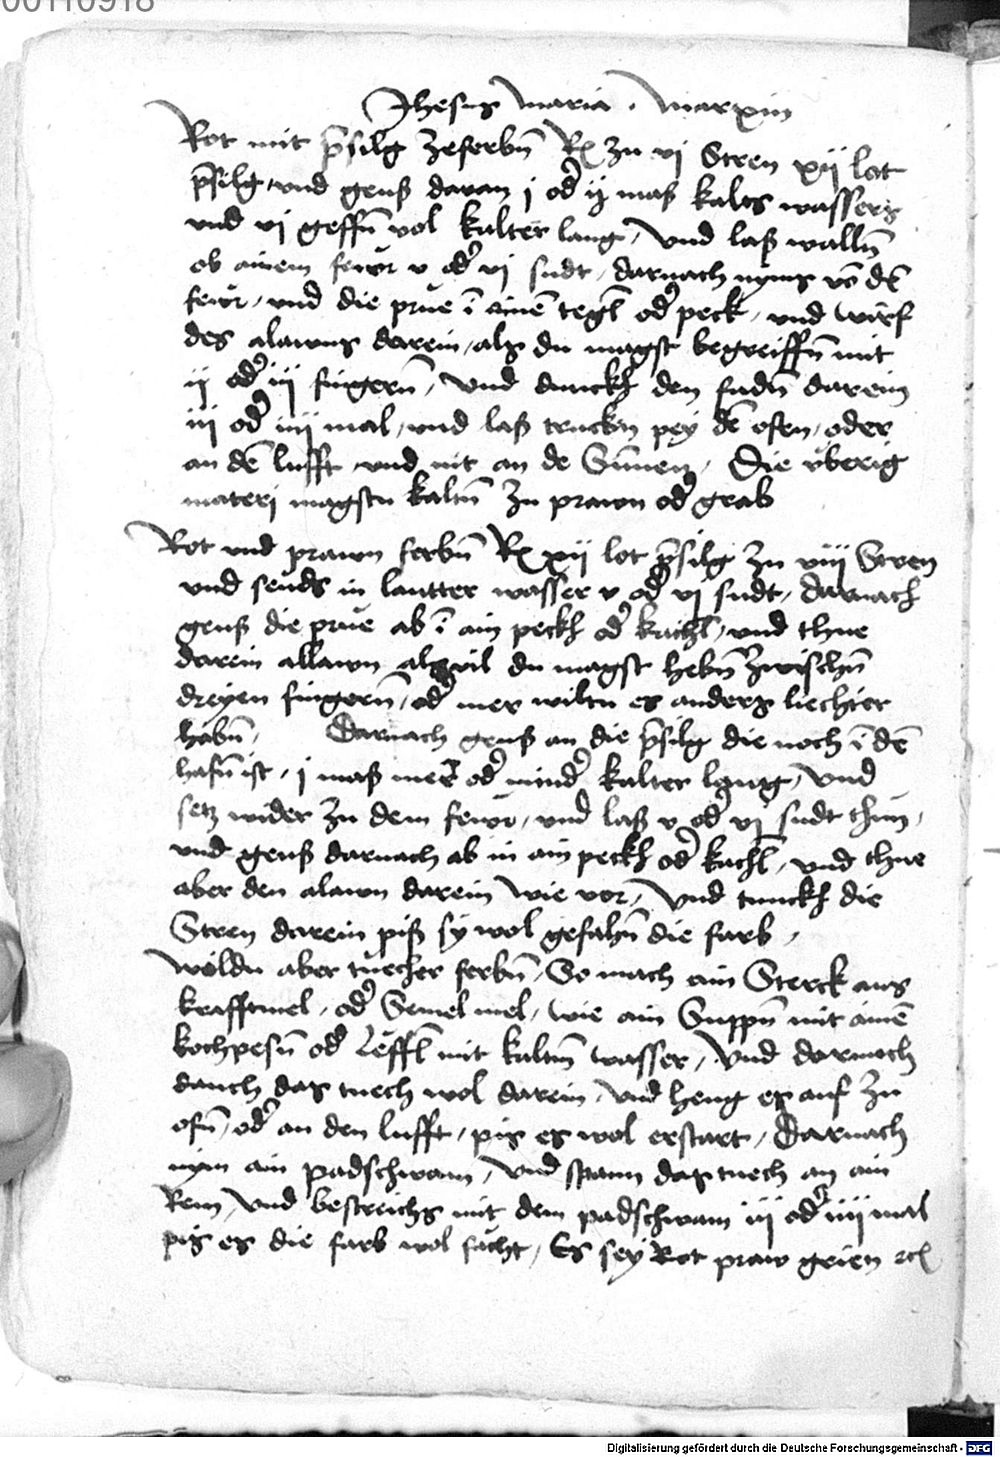 00110918
Jhesus Maria . Marxin
Rot mit p̄silg zeferbn̄ Rx zu vj Stren xij lot
p̄silg, und geuß daran j od̄ ij maß kalts wassers
und vj geffn̄ vol kalter laug, Und laß walln̄
ob ainem fewr v od̄ vj sudt, darnach nyms vō dē
fewr, und die prue ī ainē tegl od̄ peck, und wirf
des alawns darein, als du magst begreiffn̄ mit
ij od̄ iij fingern̄, Und dunckh den fadn̄ darein
iij od̄ iiij mal, und laß truckn pey dē ofen, oder
an dē lufft und nit an de Sūnen, Die uberig
materj magstu kaltn̄ zu prawn od̄ grab
Rot und prawn ferbn̄ Rx xij lot p̄silg zu viij Stren
und seuds in lautter wasser v od̄ vj sudt, darnach
geuß die prue ab ī ain peckh od̄ kachl, und thue
darein allawn alsvil du magst hebn̄ zwischn̄
dreyen fingern̄, od̄ mer wiltu es anders liechter
habn̄, Darnach geuß an die p̄silg die noch ī dē
hafn̄ ist, j maß mer od̄ mind̄ kalter laug, Und
setz wider zu dem fewr, und laß v od̄ vj sudt thun,
und geuß darnach ab in ain peckh od̄ kachl, und thue
aber den alawn darein wie vor, Und tunckh die
Stren darein piß sy wol gefahn̄ die farb,
Wöldu aber tuecher ferbn̄, So mach ain Sterck aus
krafftmel, od̄ Semel mel, wie ain Suppn̄ mit ainē
kochpesn̄ od̄ Leffl mit kaltm̄ wasser, Und darnach
dauch das tuech wol darein, Und heng es auf zu
ofn̄, od̄ an den lufft, pis es wol erstart, Darnach
nym ain padschwam, Und spann das tuech an ain
Rem, Und bestreichs mit dem padschwam iij od̄ iiij mal
pis es die farb wol facht, Es sey Rot praw grien rc
Digitalisierung gefördert durch die Deutsche Forschungsgemeinschaft - DFG